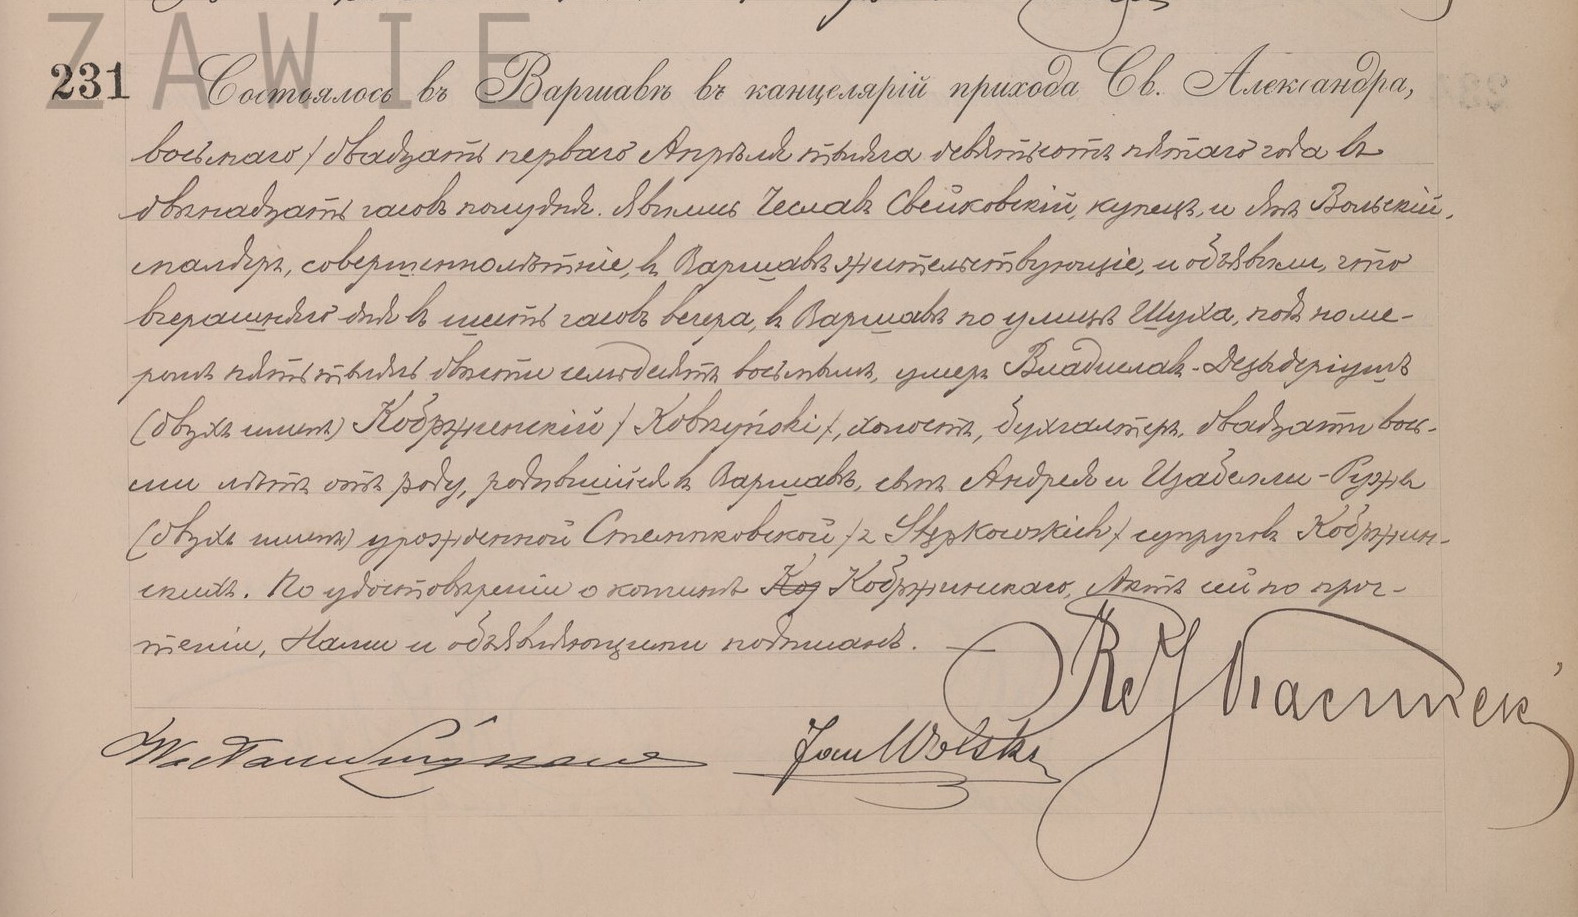 ZAWIE
231 Состоялось въ Варшавѣ въ канцелярій прихода Св. Александра,
восьмаго / двадцать перваго Апрѣля тысяча девятьсотъ пятаго года въ
двѣнадцать часовъ полудня. Явились Чеславъ Свейковскій, купецъ, и Янъ Вольскій,
маляръ, совершеннолѣтніе, въ Варшавѣ жительствующіе, и объявили, что
вчерашняго дня въ шесть часовъ вечера, въ Варшавѣ по улицѣ Шуха, подъ номе-
ромъ пять тысячъ двѣсти семьдесятъ восьмымъ, умеръ Владиславъ-Дезыдеріушъ
(двухъ именъ) Кобржинскій / Kobrzyński /, холостъ, бухгалтеръ, двадцати вось-
ми лѣтъ отъ роду, родившійся въ Варшавѣ, сынъ Андрея и Изабеллы-Ружи
(двухъ именъ) урожденной Стемпковской / z Stępkowskich / супруговъ Кобржин-
скихъ. По удостовѣреніи о кончинѣ Коз Кобржинскаго, Актъ сей по проч-
теніи, Нами и объявляющими подписанъ. —
Jan Wolski